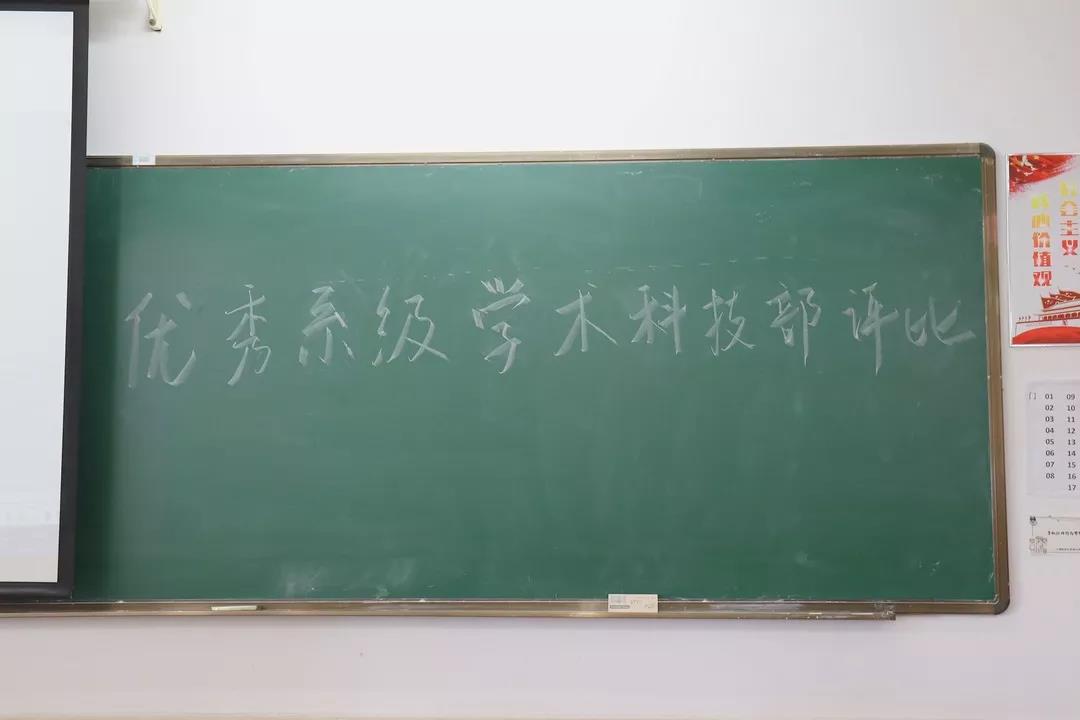 优秀系级学术科技部评比
社会主义
核心价值观
门 01 09
02 10
03 11
04 12
05 13
06 14
07 15
08 16
17